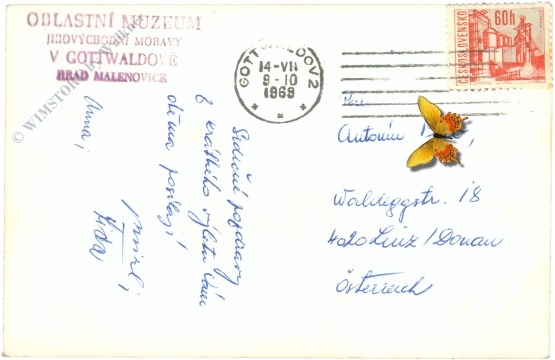 OBLASTNÍ MUZEUM
JIHOVÝCHODNÍ MORAVY
V GOTTWALDOVĚ
HRAD MALENOVICE
© WIMSTORE
GOTTWALDOV 2
14-VII
9-10
1969
ČESKOSLOVENSKO
60h
Srdečné pozdravy
z krátkého výletu Vám
oběma posílají
Anna,
Pan
Antonín
Waldeggstr. 18
4020 Linz/Donau
Österreich